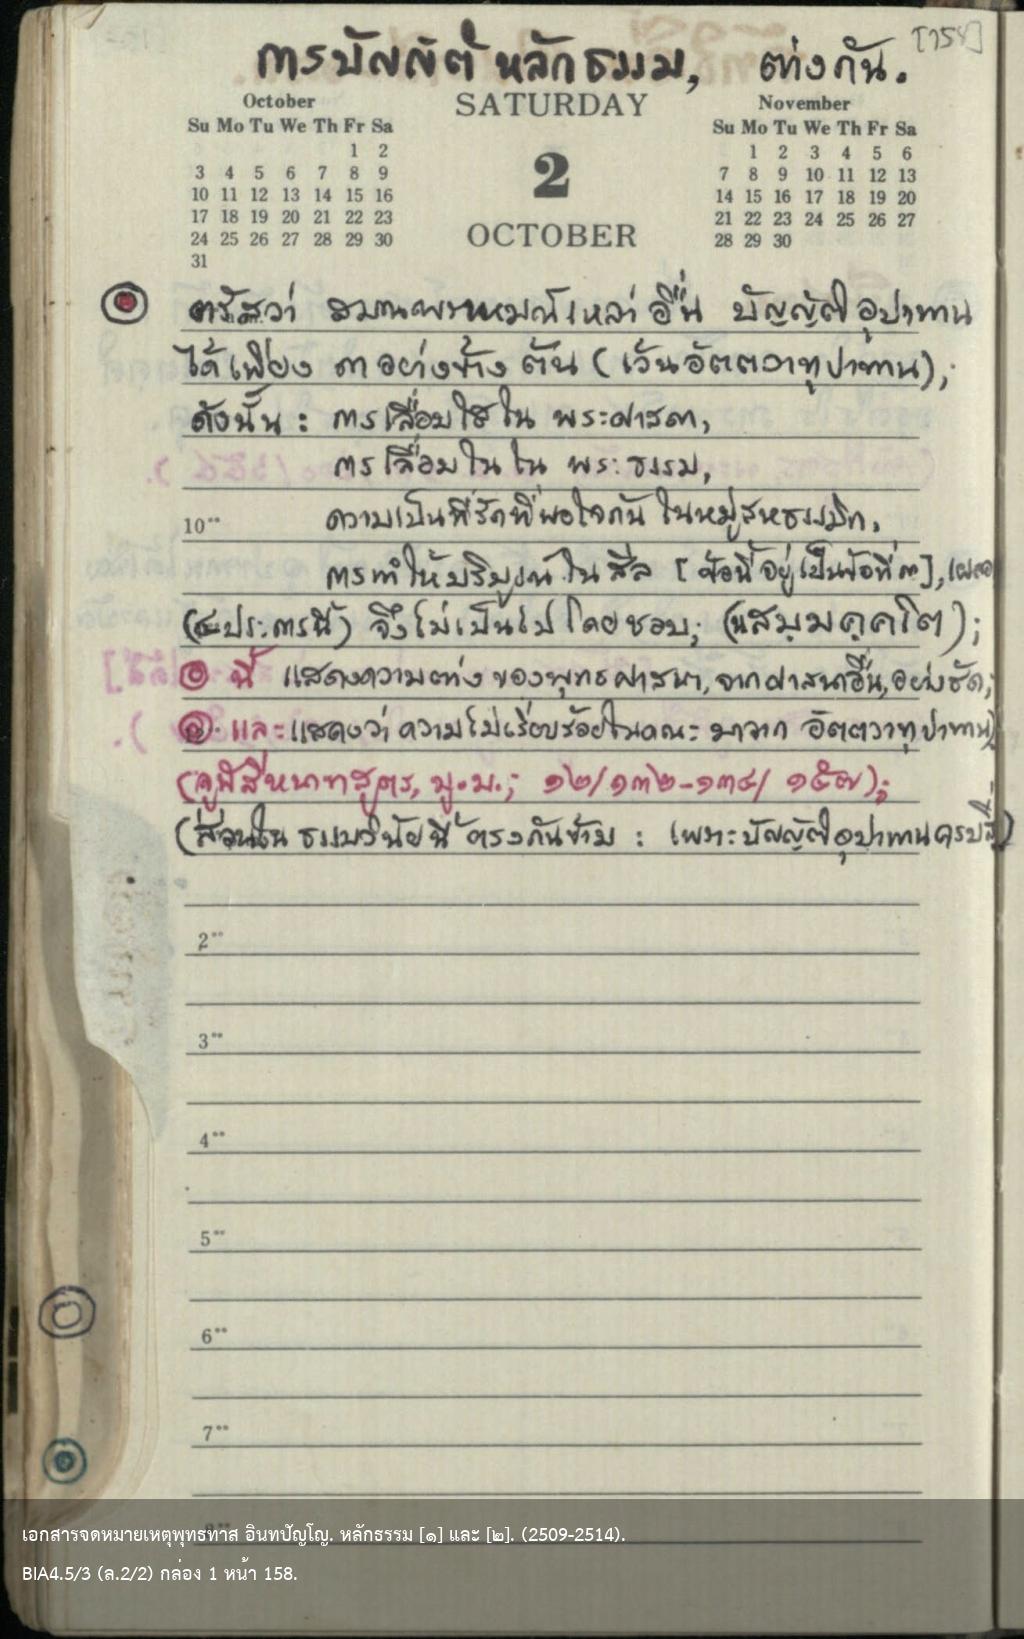 [158]
การบัญญัติ หลักธรรม, ต่างกัน.
October SATURDAY November
Su Mo Tu We Th Fr Sa
1 2
3 4 5 6 7 8 9
10 11 12 13 14 15 16
17 18 19 20 21 22 23
24 25 26 27 28 29 30
31
2
OCTOBER
Su Mo Tu We Th Fr Sa
1 2 3 4 5 6
7 8 9 10 11 12 13
14 15 16 17 18 19 20
21 22 23 24 25 26 27
28 29 30
ตรัสว่า สมณพราหมณ์เหล่าอื่น บัญญัติอุปาทาน
ได้เพียง ๓ อย่างข้างต้น (เว้นอัตตวาทุปาทาน);
ดังนั้น : การเลื่อมใสใน พระศาสดา,
การเลื่อมใสใน พระธรรม,
10°° ความเป็นที่รักที่พอใจกัน ในหมู่สหธรรมิก,
การทำให้บริบูรณ์ในศีล [ข้อนี้อยู่เป็นข้อที่ ๓],
(๔ ประการนี้) จึงไม่เป็นไปโดยชอบ; (น สมฺมคฺคโต);
๑ นี้ แสดงความต่าง ของพุทธศาสนา, จากศาสนาอื่น, อย่างชัด;
๒ และแสดงว่า ความไม่เรียบร้อยในคณะ มาจาก อัตตวาทุปาทาน
(จูฬสีหนาทสูตร, มู.ม.; ๑๒/๑๓๒-๑๓๔/ ๑๕๗);
(ส่วนใน ธรรมวินัยนี้ ตรงกันข้าม : เพราะบัญญัติอุปาทานครบสี่)
2°°
3°°
4°°
5°°
6°°
7°°
เอกสารจดหมายเหตุพุทธทาส อินทปัญโญ. หลักธรรม [๑] และ [๒]. (2509-2514).
BIA4.5/3 (ล.2/2) กล่อง 1 หน้า 158.